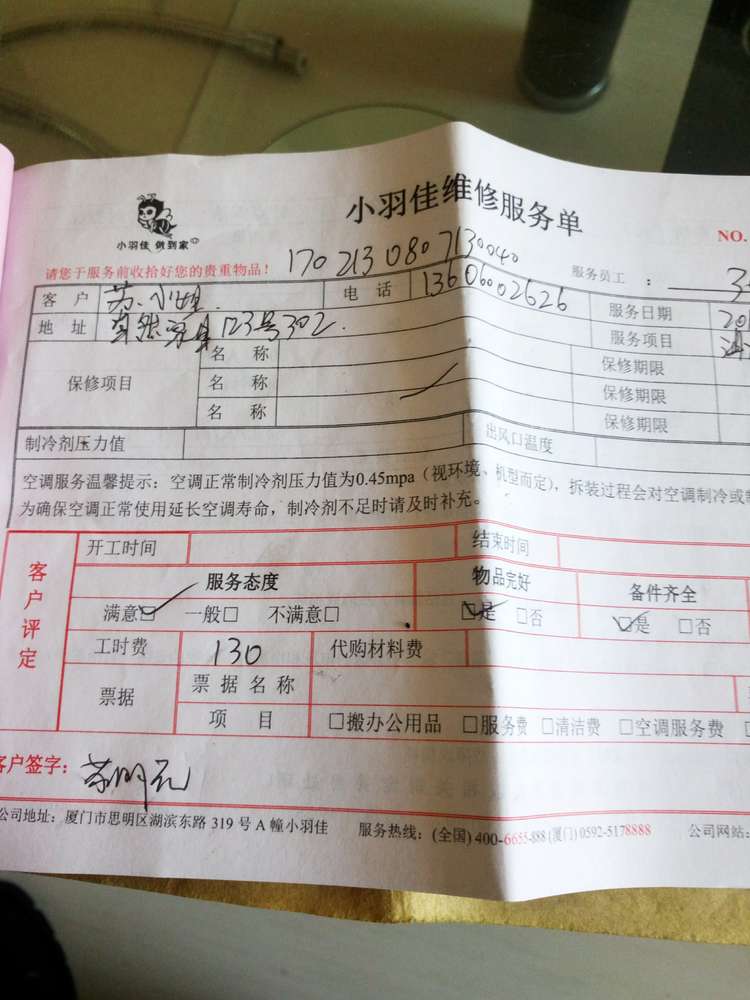 小羽佳维修服务单
小羽佳 做到家
NO.
请您于服务前收拾好您的贵重物品！ 1702130807130040 服务员工：
客户 苏小姐 电话 13606002626 服务日期 201
地址 123号302 服务项目
保修项目 名称 保修期限
名称 保修期限
名称 保修期限
制冷剂压力值 出风口温度
空调服务温馨提示：空调正常制冷剂压力值为0.45mpa（视环境、机型而定），拆装过程会对空调制冷或
为确保空调正常使用延长空调寿命，制冷剂不足时请及时补充。
客户评定
开工时间 结束时间
服务态度 物品完好 备件齐全
满意☑ 一般□ 不满意□ ☑是 □否 ☑是 □否
工时费 130 代购材料费
票据 票据名称
项目 □搬办公用品 □服务费 □清洁费 □空调服务费
客户签字：
公司地址：厦门市思明区湖滨东路 319 号 A 幢小羽佳 服务热线：(全国) 400-6655-888 (厦门) 0592-5178888 公司网站：